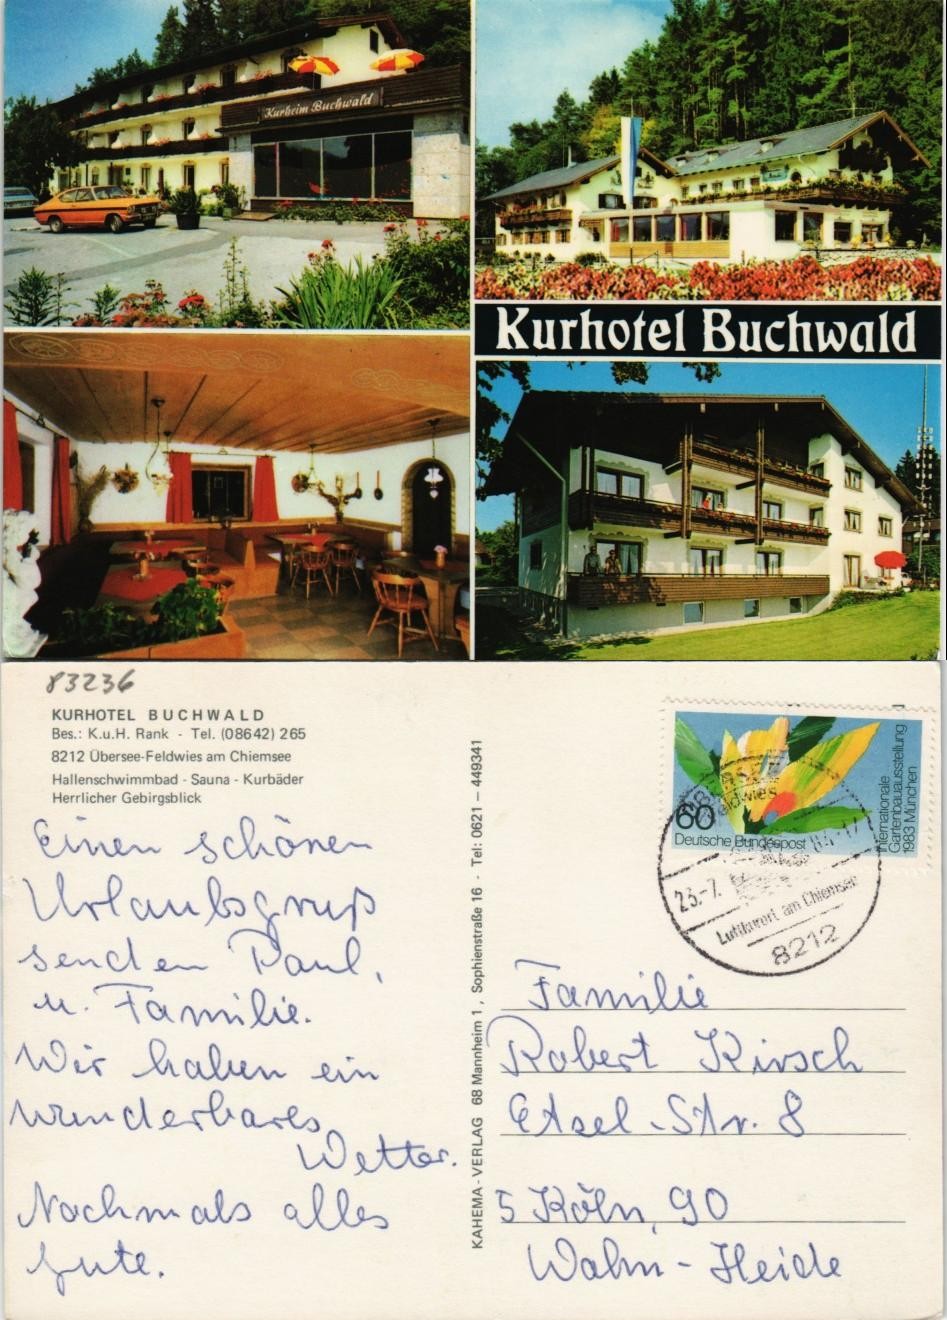 Kurheim Buchwald
Kurhotel Buchwald
83236
KURHOTEL BUCHWALD
Bes.: K.u.H. Rank - Tel. (08642) 265
8212 Übersee-Feldwies am Chiemsee
Hallenschwimmbad - Sauna - Kurbäder
Herrlicher Gebirgsblick
Einen schönen
Urlaubsgruß
senden Paul,
u. Familie.
Wir haben ein
wunderbares
Wetter.
Nochmals alles
gute.
KAHEMA-VERLAG 68 Mannheim 1, Sophienstraße 16 - Tel: 0621 – 449341
60
Deutsche Bundespost
Internationale
Gartenbauausstellung
1983 München
Feldwies
23.-7.
Luftkurort am Chiemsee
8212
Familie
Robert Kirsch
Etzel-Str. 8
5 Köln, 90
Wahn-Heide